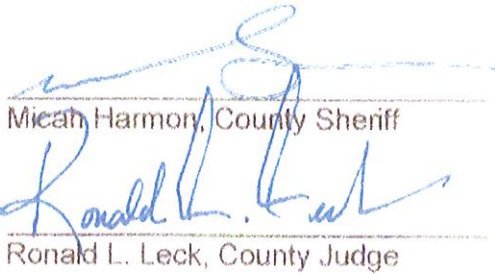 Micah Harmon, County Sheriff
Ronald L. Leck
Ronald L. Leck, County Judge